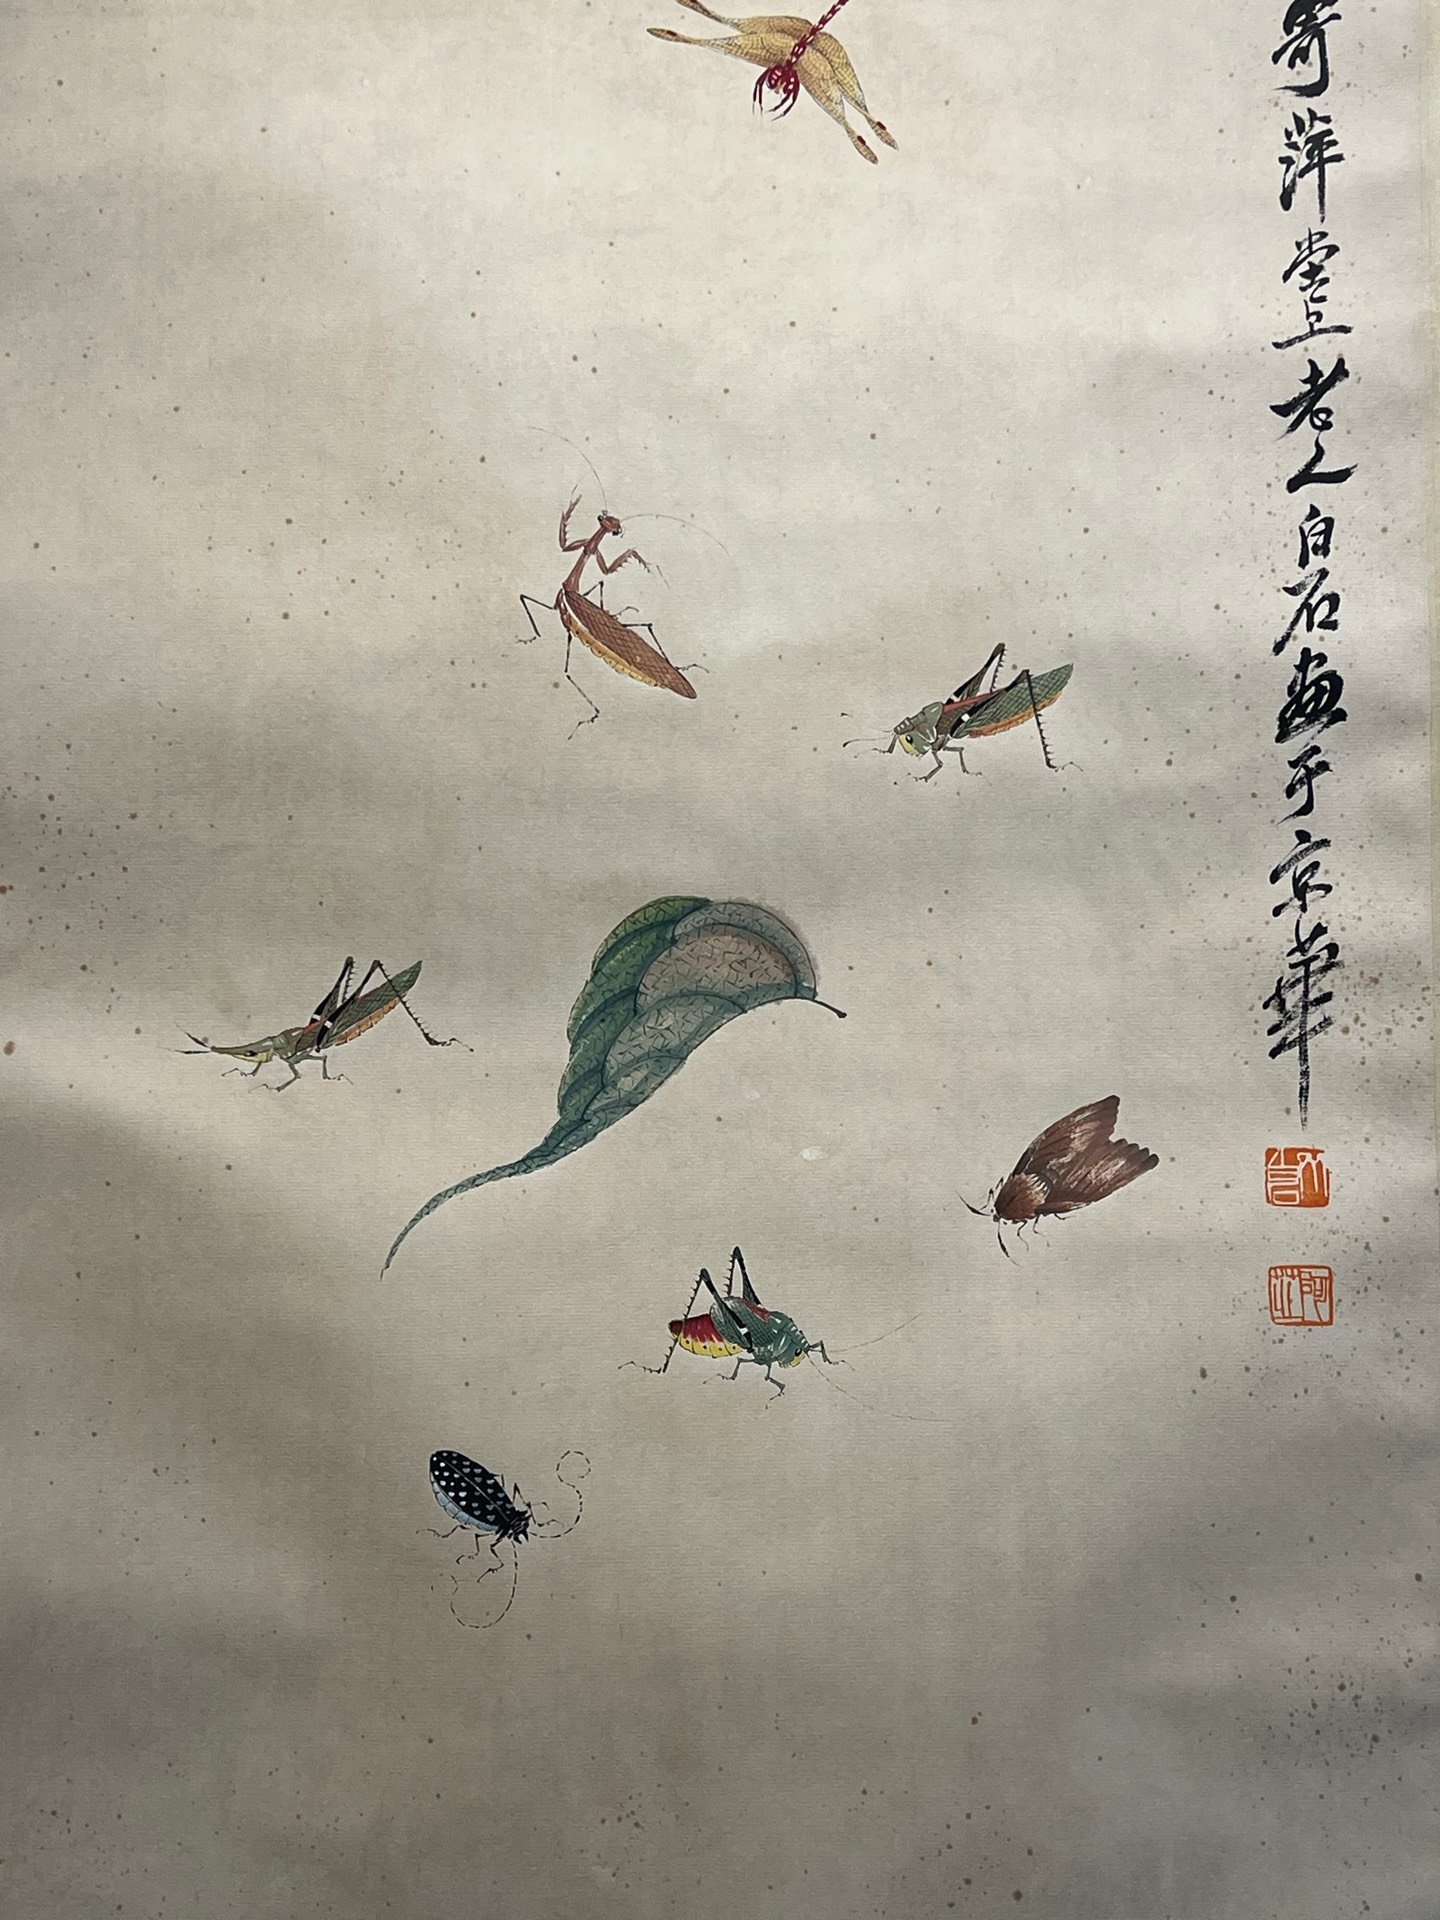 寄萍堂上老人白石画于京華
木人
阿芝